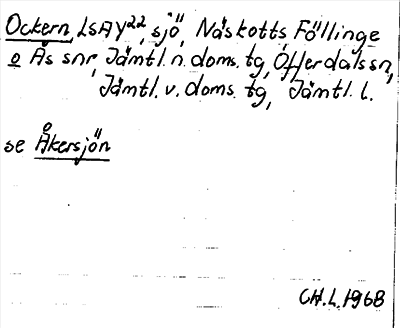 Ockern, LSAY22, sjö, Näskotts Föllinge
o Ås snr, Jämtl. n. doms. tg, Offerdals sn,
Jämtl. v. doms. tg, Jämtl. l.
se Åkersjön
CH.L.1968